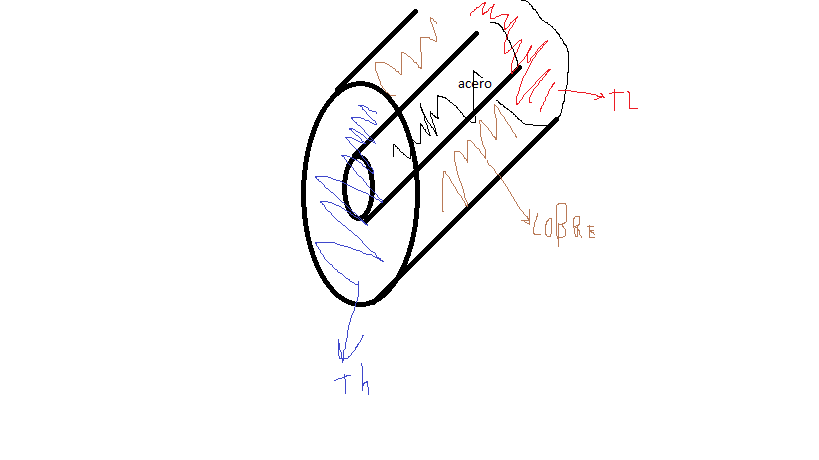 acero
TL
COBRE
Th